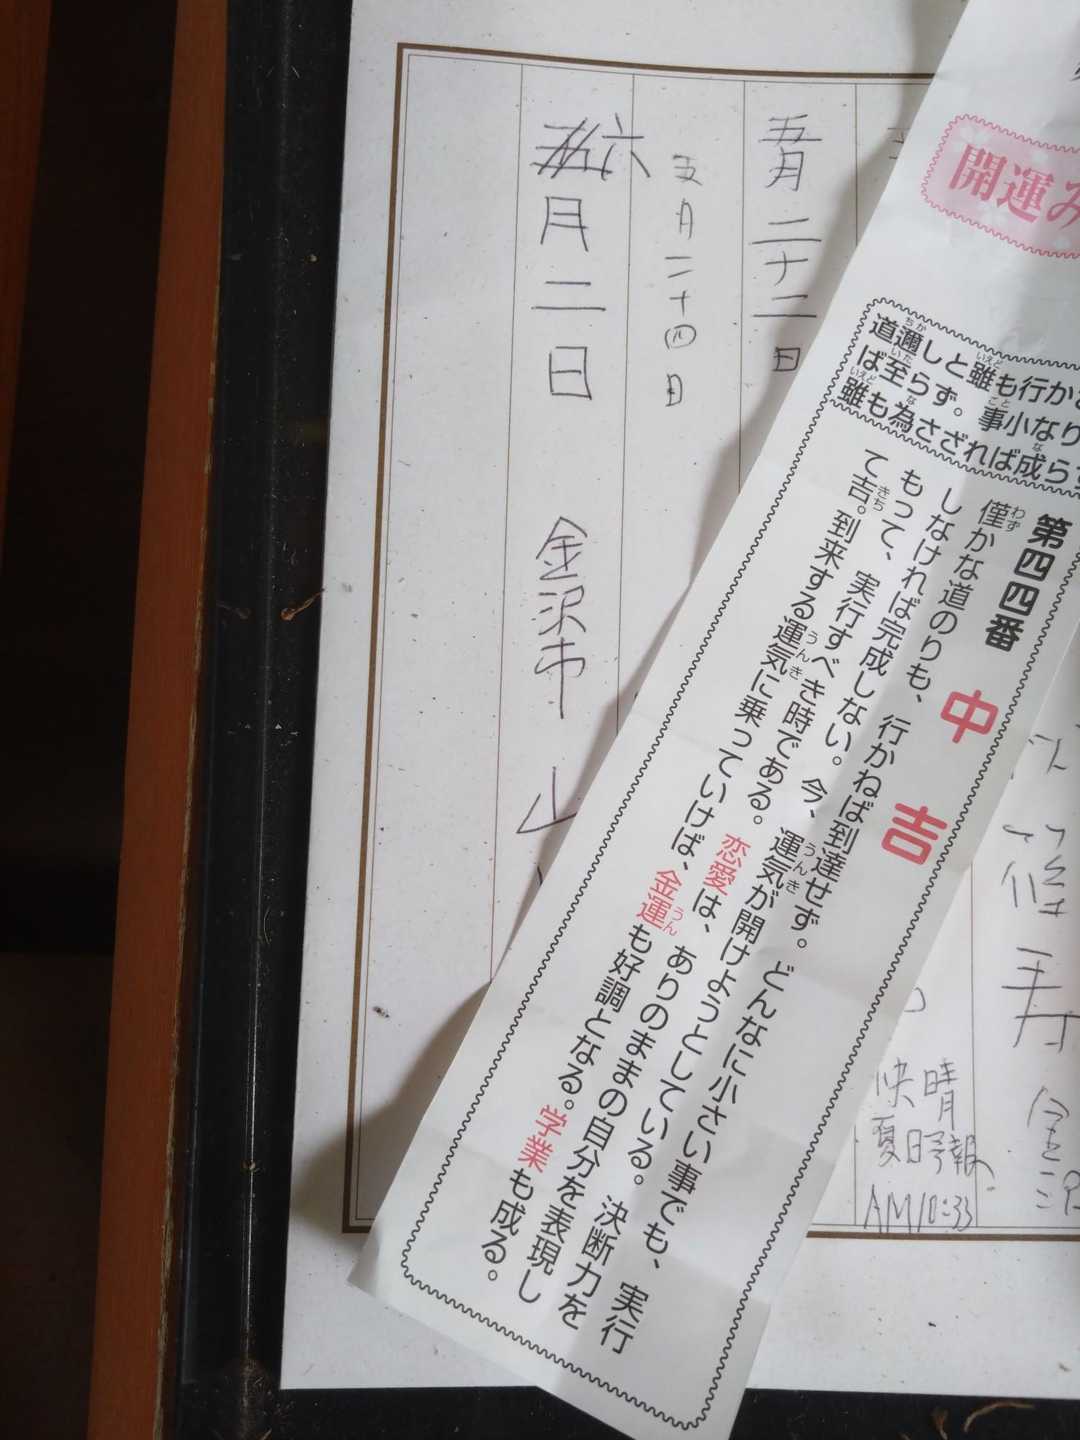 開運み
道邇しと雖も行か
ば至らず。事小なり
雖も為さざれば成らず
第四四番
中吉
僅かな道のりも、行かねば到達せず。どんなに小さい事でも、実行
しなければ完成しない。今、運気が開けようとしている。決断力を
もって、実行すべき時である。恋愛は、ありのままの自分を表現し
て吉。到来する運気に乗っていけば、金運も好調となる。学業も成る。
快晴
夏日予報
AM10:33
五月二十二日
五月二十四日
六月二日 金沢市 山